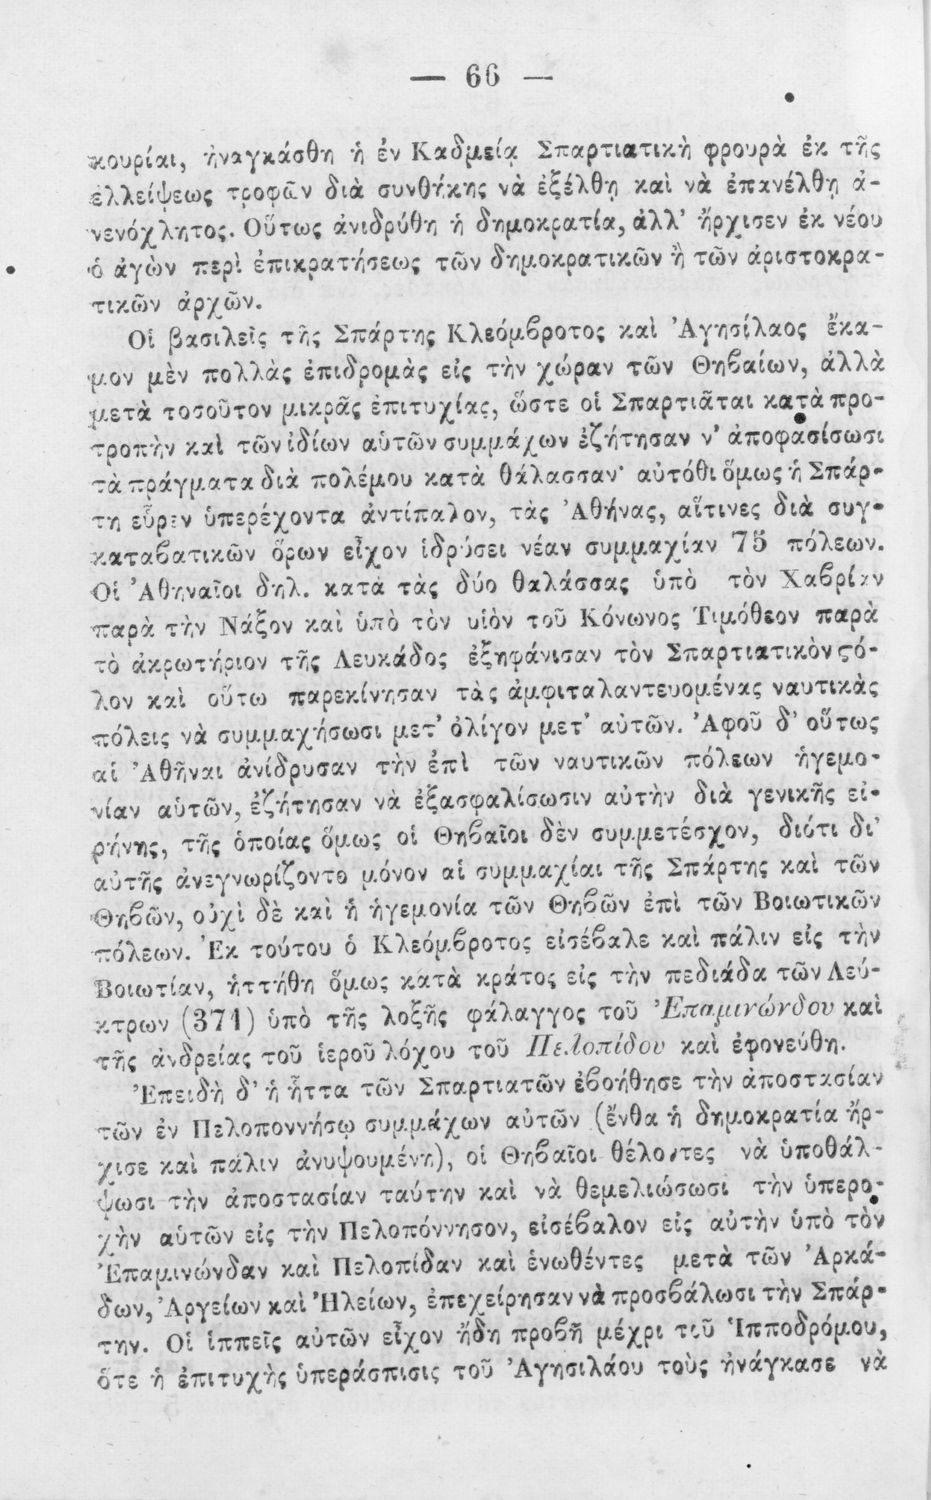 — 66 —
κουρίαι, ἠναγκάσθη ἡ ἐν Καδμείᾳ Σπαρτιατικὴ φρουρὰ ἐκ τῆς
ἐλλείψεως τροφῶν διὰ συνθήκης νὰ ἐξέλθῃ καὶ νὰ ἐπανέλθῃ ἀ-
νενόχλητος. Οὕτως ἀνιδρύθη ἡ δημοκρατία, ἀλλ’ ἤρχισεν ἐκ νέου
ὁ ἀγὼν περὶ ἐπικρατήσεως τῶν δημοκρατικῶν ἢ τῶν ἀριστοκρα-
τικῶν ἀρχῶν.
Οἱ βασιλεῖς τῆς Σπάρτης Κλεόμβροτος καὶ Ἀγησίλαος ἔκα-
μον μὲν πολλὰς ἐπιδρομὰς εἰς τὴν χώραν τῶν Θηβαίων, ἀλλὰ
μετὰ τοσοῦτον μικρᾶς ἐπιτυχίας, ὥστε οἱ Σπαρτιᾶται κατὰ προ-
τροπὴν καὶ τῶν ἰδίων αὑτῶν συμμάχων ἐζήτησαν ν’ ἀποφασίσωσι
τὰ πράγματα διὰ πολέμου κατὰ θάλασσαν· αὐτόθι ὅμως ἡ Σπάρ-
τη εὗρεν ὑπερέχοντα ἀντίπαλον, τὰς Ἀθήνας, αἵτινες διὰ συγ-
καταβατικῶν ὅρων εἶχον ἱδρύσει νέαν συμμαχίαν 75 πόλεων.
Οἱ Ἀθηναῖοι δηλ. κατὰ τὰς δύο θαλάσσας ὑπὸ τὸν Χαβρίαν
παρὰ τὴν Νάξον καὶ ὑπὸ τὸν υἱὸν τοῦ Κόνωνος Τιμόθεον παρὰ
τὸ ἀκρωτήριον τῆς Λευκάδος ἐξηφάνισαν τὸν Σπαρτιατικὸν ϛό-
λον καὶ οὕτω παρεκίνησαν τὰς ἀμφιταλαντευομένας ναυτικὰς
πόλεις νὰ συμμαχήσωσι μετ’ ὀλίγον μετ’ αὐτῶν. Ἀφοῦ δ’ οὕτως
αἱ Ἀθῆναι ἀνίδρυσαν τὴν ἐπὶ τῶν ναυτικῶν πόλεων ἡγεμο-
νίαν αὑτῶν, ἐζήτησαν νὰ ἐξασφαλίσωσιν αὐτὴν διὰ γενικῆς εἰ-
ρήνης, τῆς ὁποίας ὅμως οἱ Θηβαῖοι δὲν συμμετέσχον, διότι δι’
αὐτῆς ἀνεγνωρίζοντο μόνον αἱ συμμαχίαι τῆς Σπάρτης καὶ τῶν
Θηβῶν, οὐχὶ δὲ καὶ ἡ ἡγεμονία τῶν Θηβῶν ἐπὶ τῶν Βοιωτικῶν
πόλεων. Ἐκ τούτου ὁ Κλεόμβροτος εἰσέβαλε καὶ πάλιν εἰς τὴν
Βοιωτίαν, ἡττήθη ὅμως κατὰ κράτος εἰς τὴν πεδιάδα τῶν Λεύ-
κτρων (371) ὑπὸ τῆς λοξῆς φάλαγγος τοῦ Ἐπαμινώνδου καὶ
τῆς ἀνδρείας τοῦ ἱεροῦ λόχου τοῦ Πελοπίδου καὶ ἐφονεύθη.
Ἐπειδὴ δ’ ἡ ἧττα τῶν Σπαρτιατῶν ἐβοήθησε τὴν ἀποστασίαν
τῶν ἐν Πελοποννήσῳ συμμάχων αὐτῶν (ἔνθα ἡ δημοκρατία ἤρ-
χισε καὶ πάλιν ἀνυψουμένη), οἱ Θηβαῖοι θέλοντες νὰ ὑποθάλ-
ψωσι τὴν ἀποστασίαν ταύτην καὶ νὰ θεμελιώσωσι τὴν ὑπερο-
χὴν αὑτῶν εἰς τὴν Πελοπόννησον, εἰσέβαλον εἰς αὐτὴν ὑπὸ τὸν
Ἐπαμινώνδαν καὶ Πελοπίδαν καὶ ἑνωθέντες μετὰ τῶν Ἀρκά-
δων, Ἀργείων καὶ Ἠλείων, ἐπεχείρησαν νὰ προσβάλωσι τὴν Σπάρ-
την. Οἱ ἱππεῖς αὐτῶν εἶχον ἤδη προβῆ μέχρι τοῦ Ἱπποδρόμου,
ὅτε ἡ ἐπιτυχὴς ὑπεράσπισις τοῦ Ἀγησιλάου τοὺς ἠνάγκασε νὰ